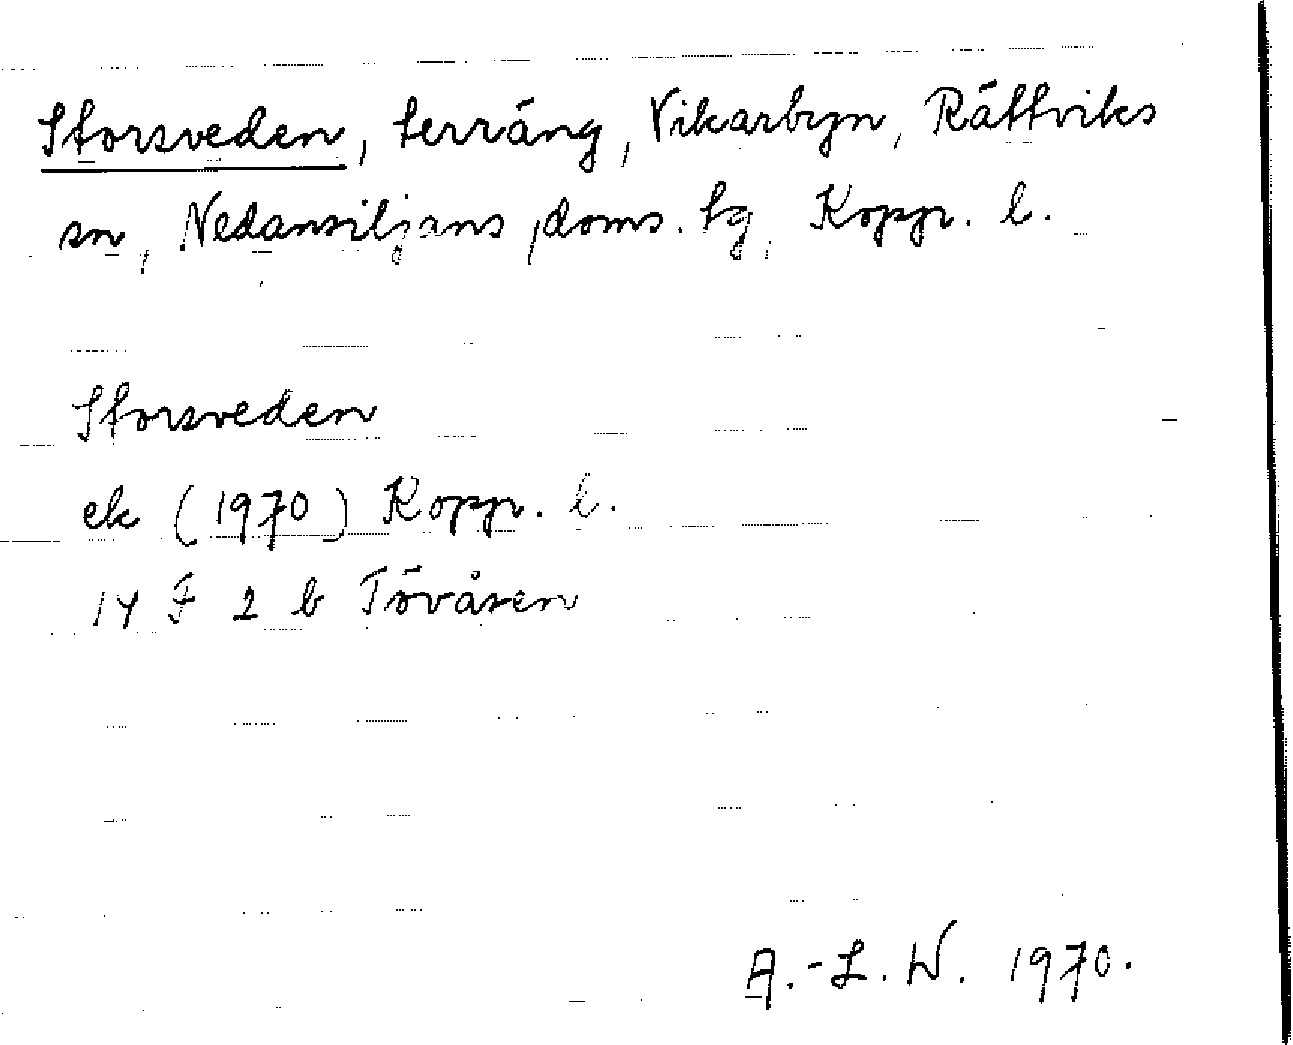 Storsveden, terräng, Vikarbyn, Rättviks
sn, Nedansiljans doms. tg, Kopp. l.
Storsveden
ek (1970) Kopp. l.
14 F 2 b Tövåsen
A.-L. W. 1970.